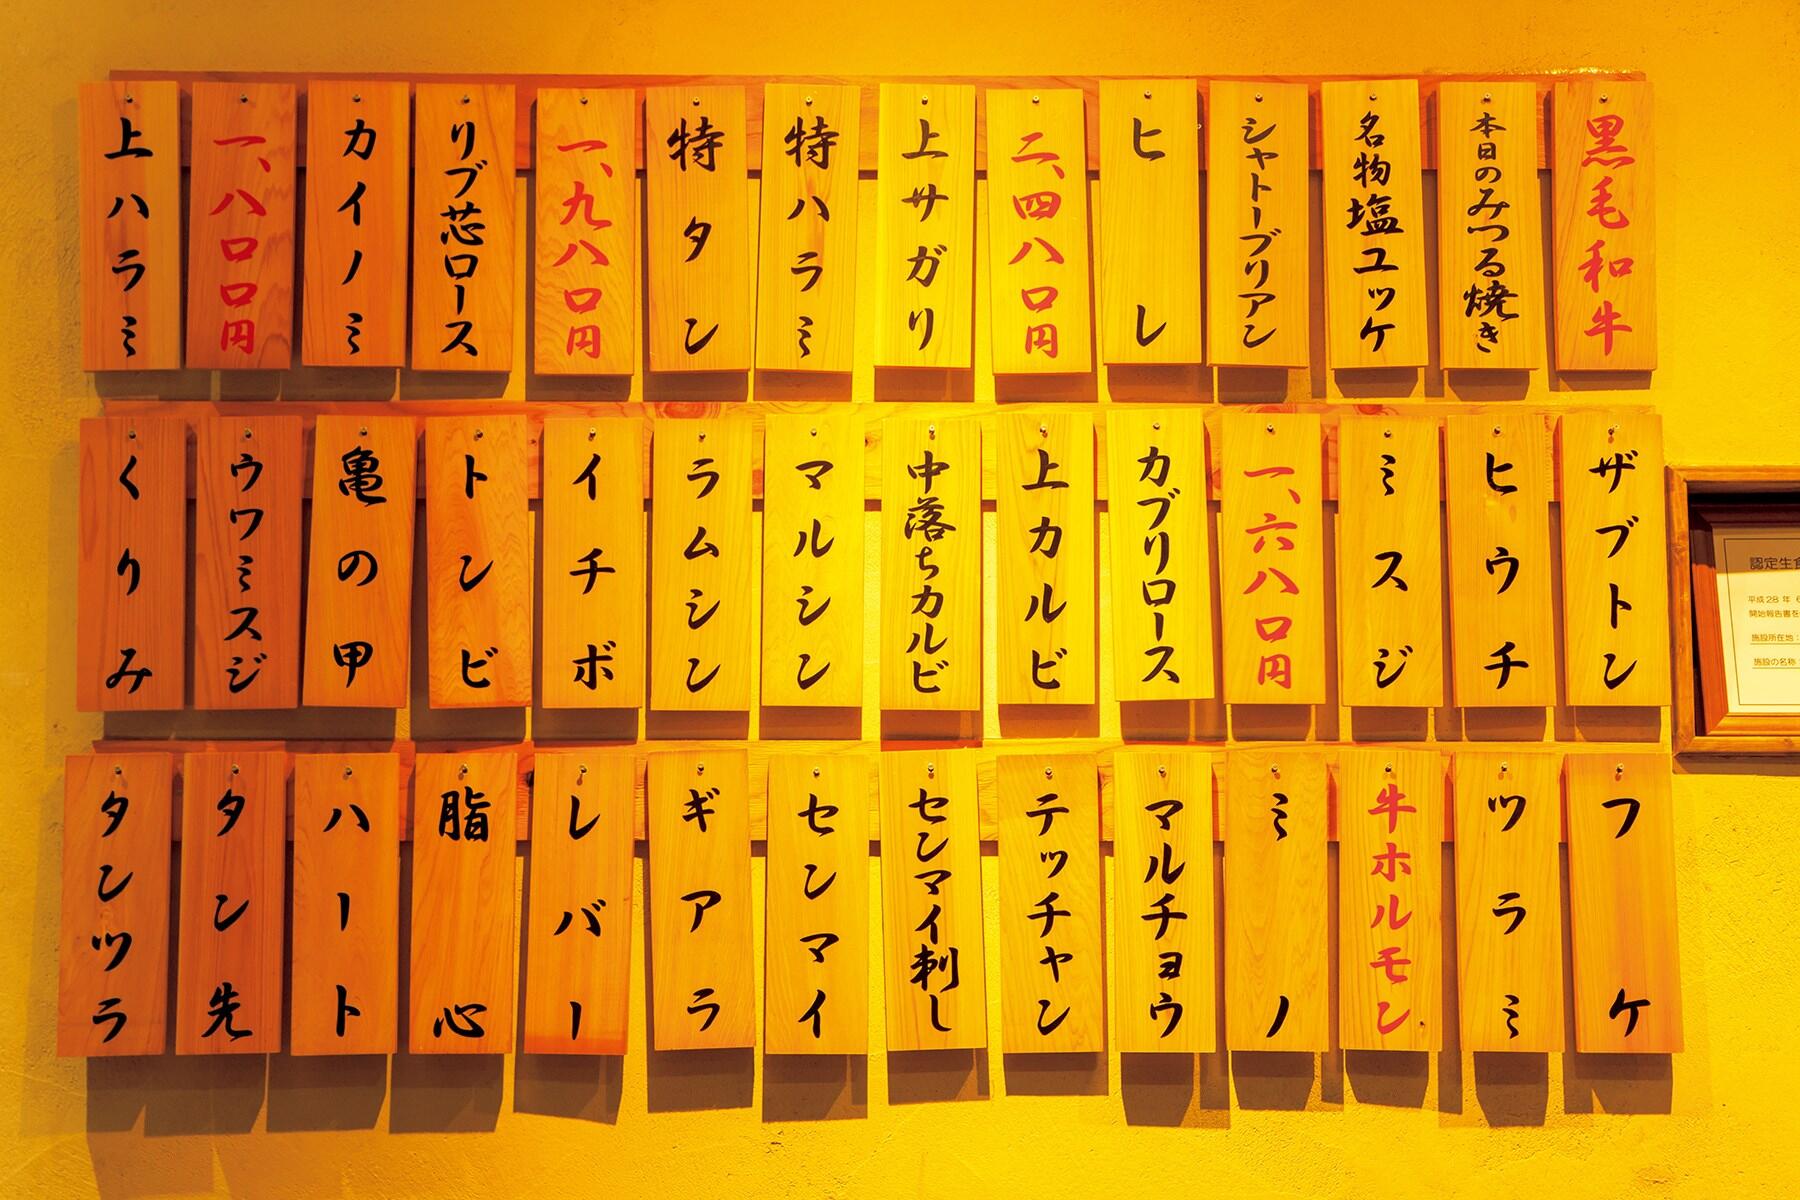 黒毛和牛
本日のみつる焼き
名物塩ユッケ
シャトーブリアン
ヒレ
二、四八〇円
上サガリ
特ハラミ
特タン
一、九八〇円
リブ芯ロース
カイノミ
一、八〇〇円
上ハラミ
ザブトン
ヒウチ
ミスジ
一、六八〇円
カブリロース
上カルビ
中落ちカルビ
マルシン
ラムシン
イチボ
トンビ
亀の甲
ウワミスジ
くりみ
フケ
ツラミ
牛ホルモン
ミノ
マルチョウ
テッチャン
センマイ刺し
センマイ
ギアラ
レバー
脂心
ハート
タン先
タンツラ
認定生食
平成28年
開始報告書を
施設所在地：
施設の名称：